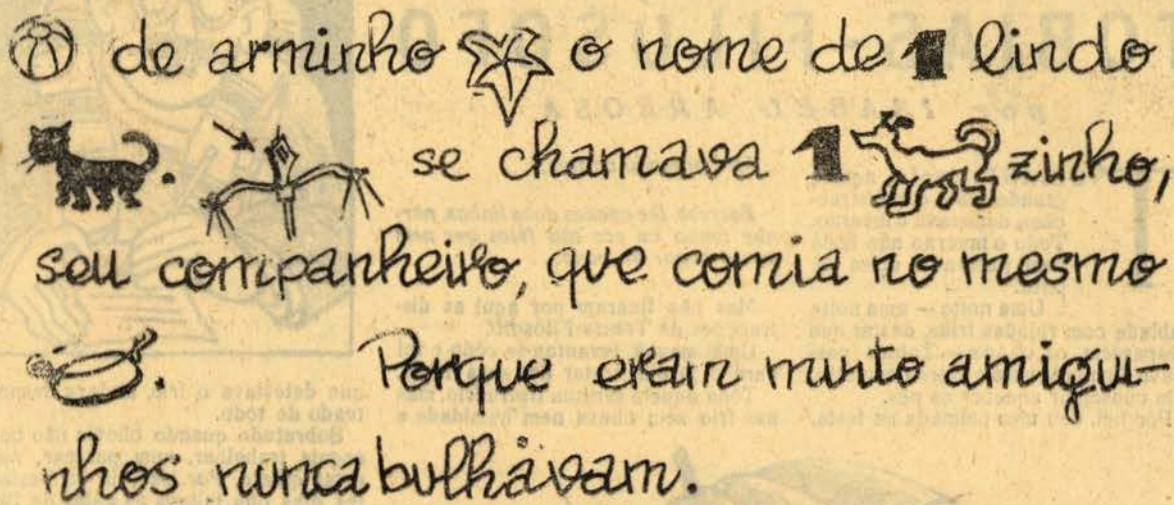 de arminho o nome de 1 lindo
. se chamava 1 zinho,
seu companheiro, que comia no mesmo
. Porque eram muito amigui-
nhos nunca bulhávam.